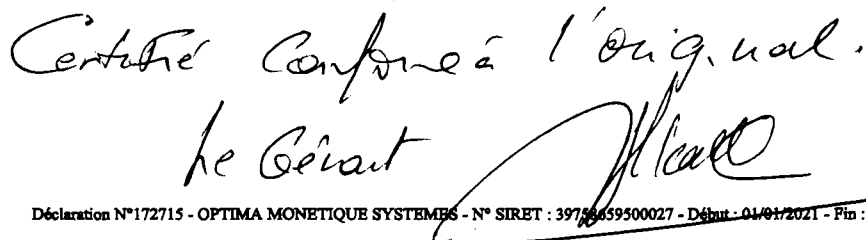 Certifié Conforme à l'original.
Le Gérant
Déclaration N°172715 - OPTIMA MONETIQUE SYSTEMES - N° SIRET : 39758659500027 - Début : 01/01/2021 - Fin :